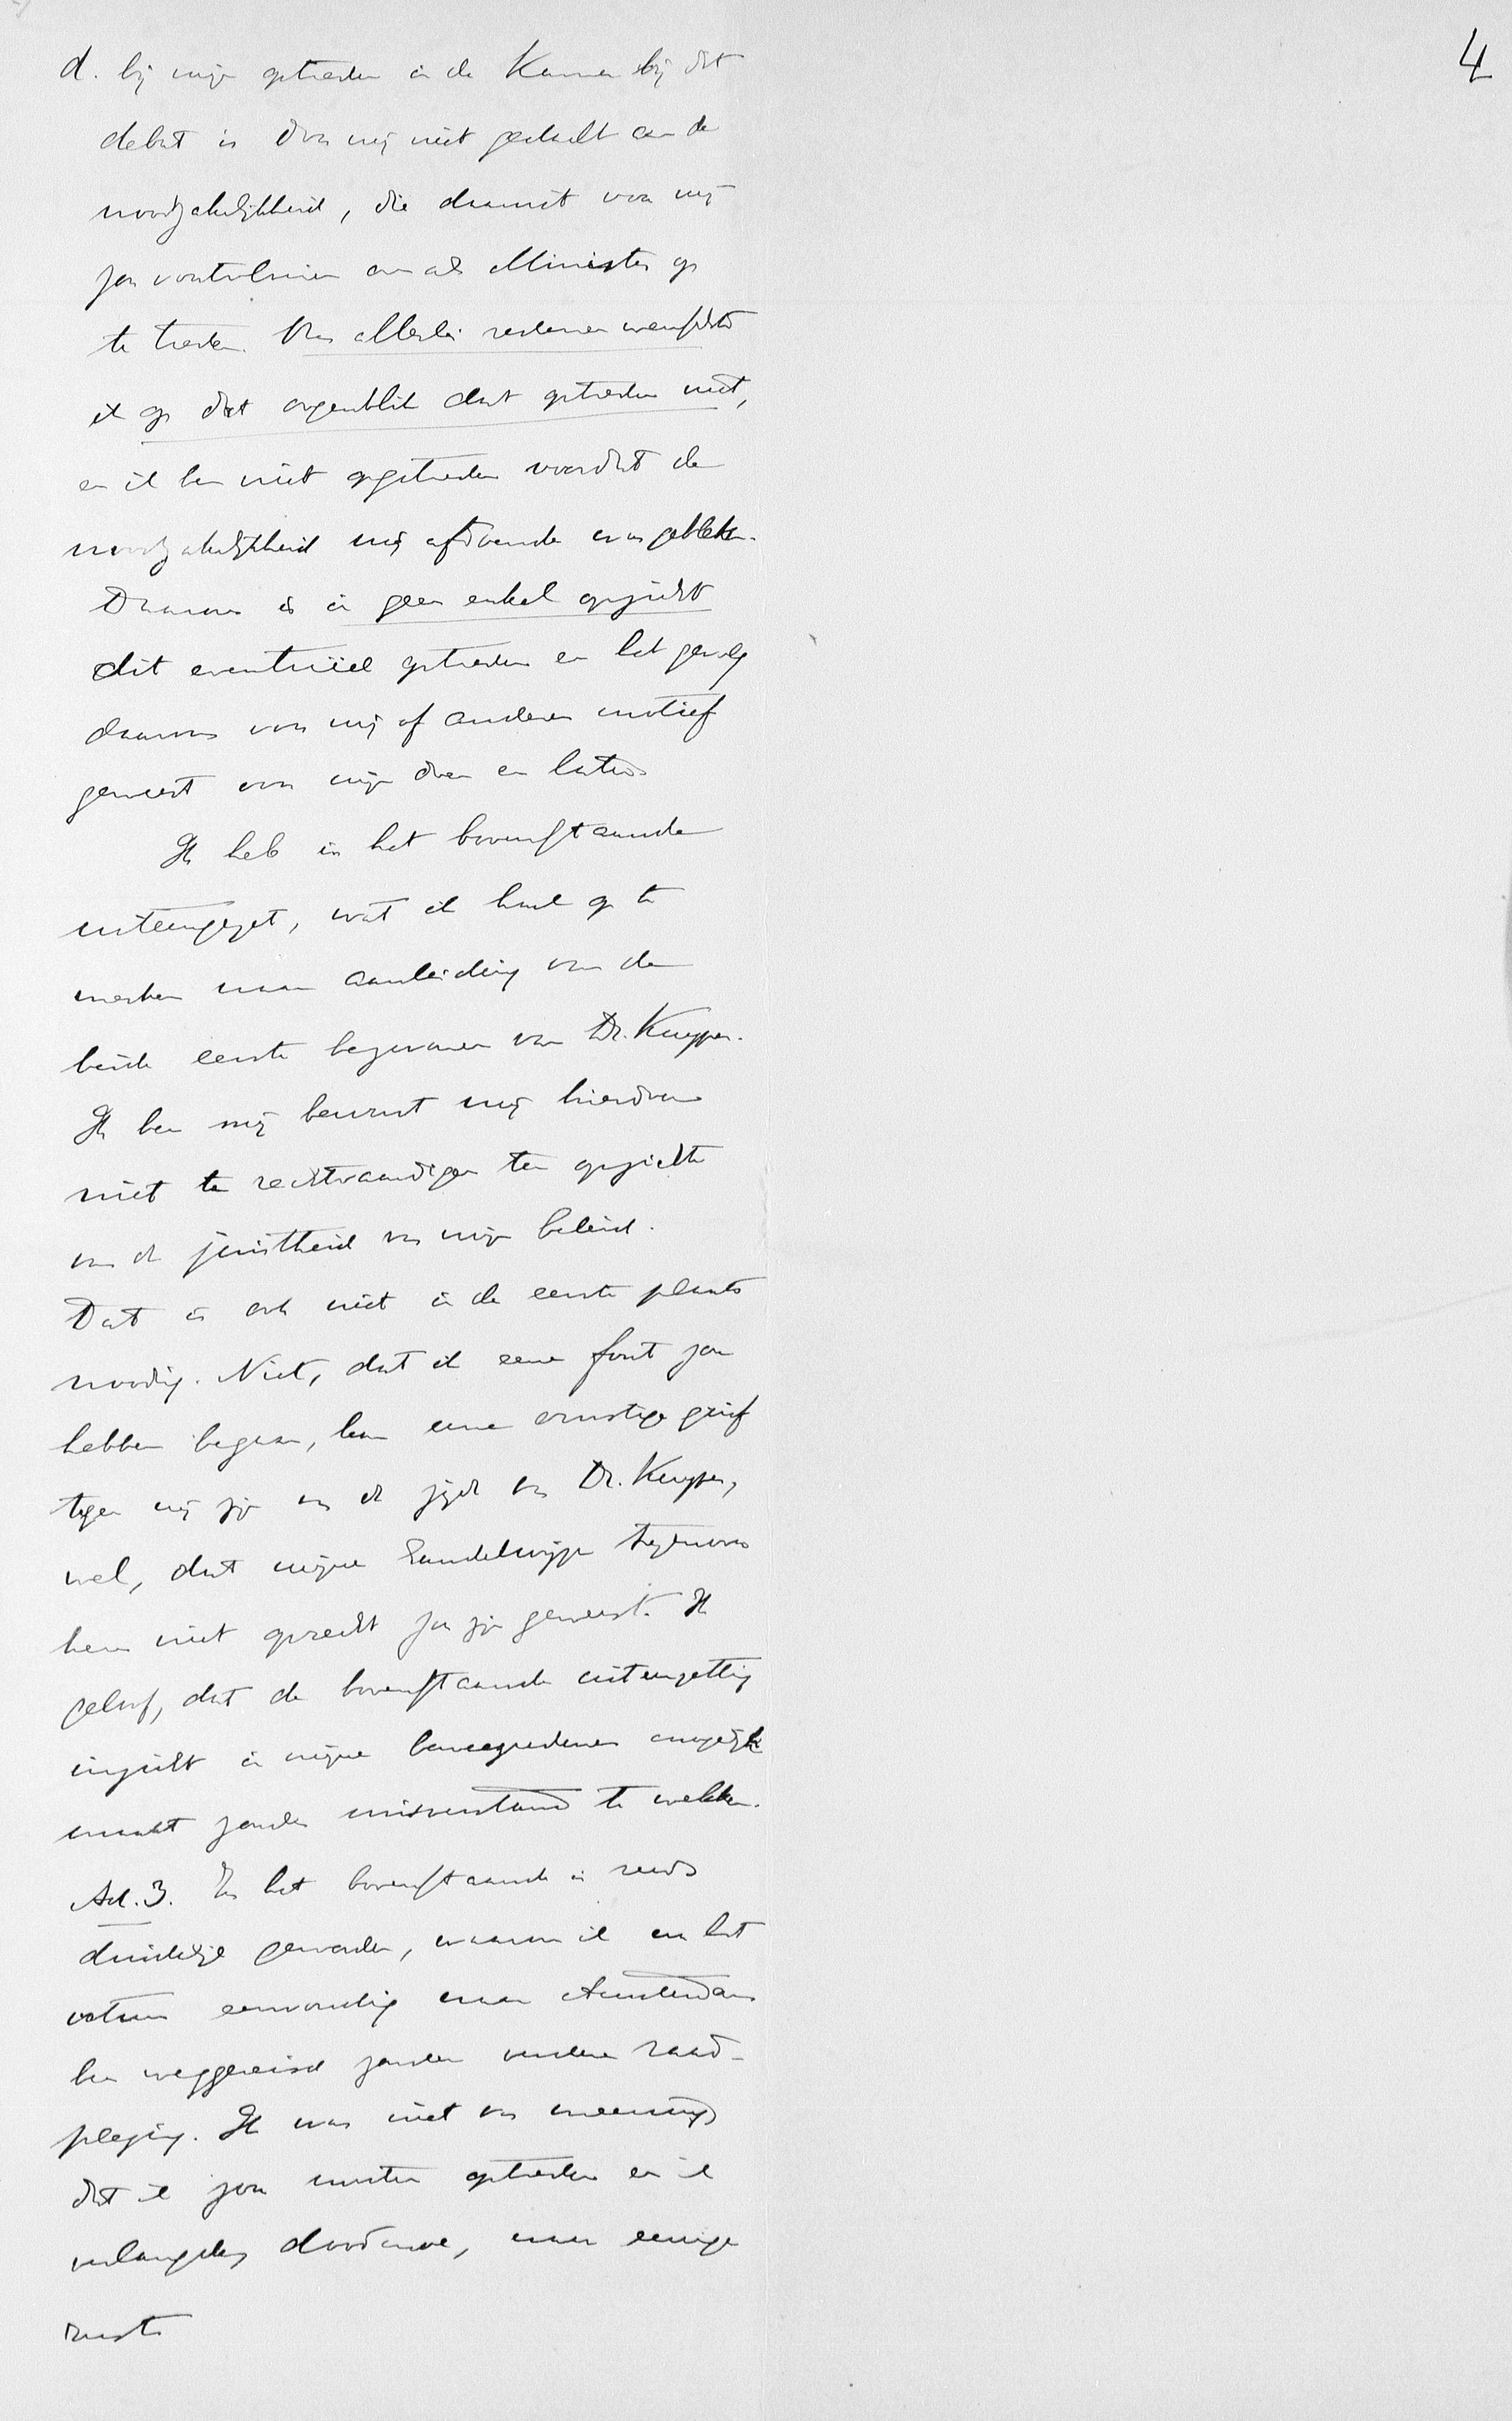 4
d. bij mijn optreden in de Kamer bij dit
debat is door mij niet gedacht aan de
noodzakelijkheid, die daaruit voor mij
zou voortvloeien om als Minister op
te treden. Om allerlei redenen wenschte
ik op dat oogenblik dat optreden niet,
en ik ben niet opgetreden voordat de
noodzakelijkheid mij afdoende was gebleken.
Daarom is in geen enkel opzicht
dit eventueel optreden en het gevolg
daarvan voor mij of anderen motief
geweest voor mijn doen en laten.
Ik heb in het bovenstaande
uiteengezet, wat ik had op te
merken naar aanleiding van de
beide eerste bezwaren van Dr. Kuyper.
Ik ben mij bewust mij hierdoor
niet te rechtvaardigen ten opzichte
van de juistheid van mijn beleid.
Dat is ook niet in de eerste plaats
noodig. Niet, dat ik eene fout zou
hebben begaan, kan eene ernstige grief
tegen mij zijn van de zijde van Dr. Kuyper,
wel, dat mijne handelwijze tegenover
hem niet oprecht zou zijn geweest. Ik
geloof, dat de bovenstaande uiteenzetting
inzicht in mijne beweegredenen mogelijk
maakt zonder misverstand te wekken.
Ad. 3. In het bovenstaande is reeds
duidelijk geworden, waarom ik na het
votum eenvoudig naar Amsterdam
ben weggereisd zonder verdere raad-
pleging. Ik was niet van meening
dat ik zou moeten optreden en ik
verlangde, doodmoe, naar eenige
rust.